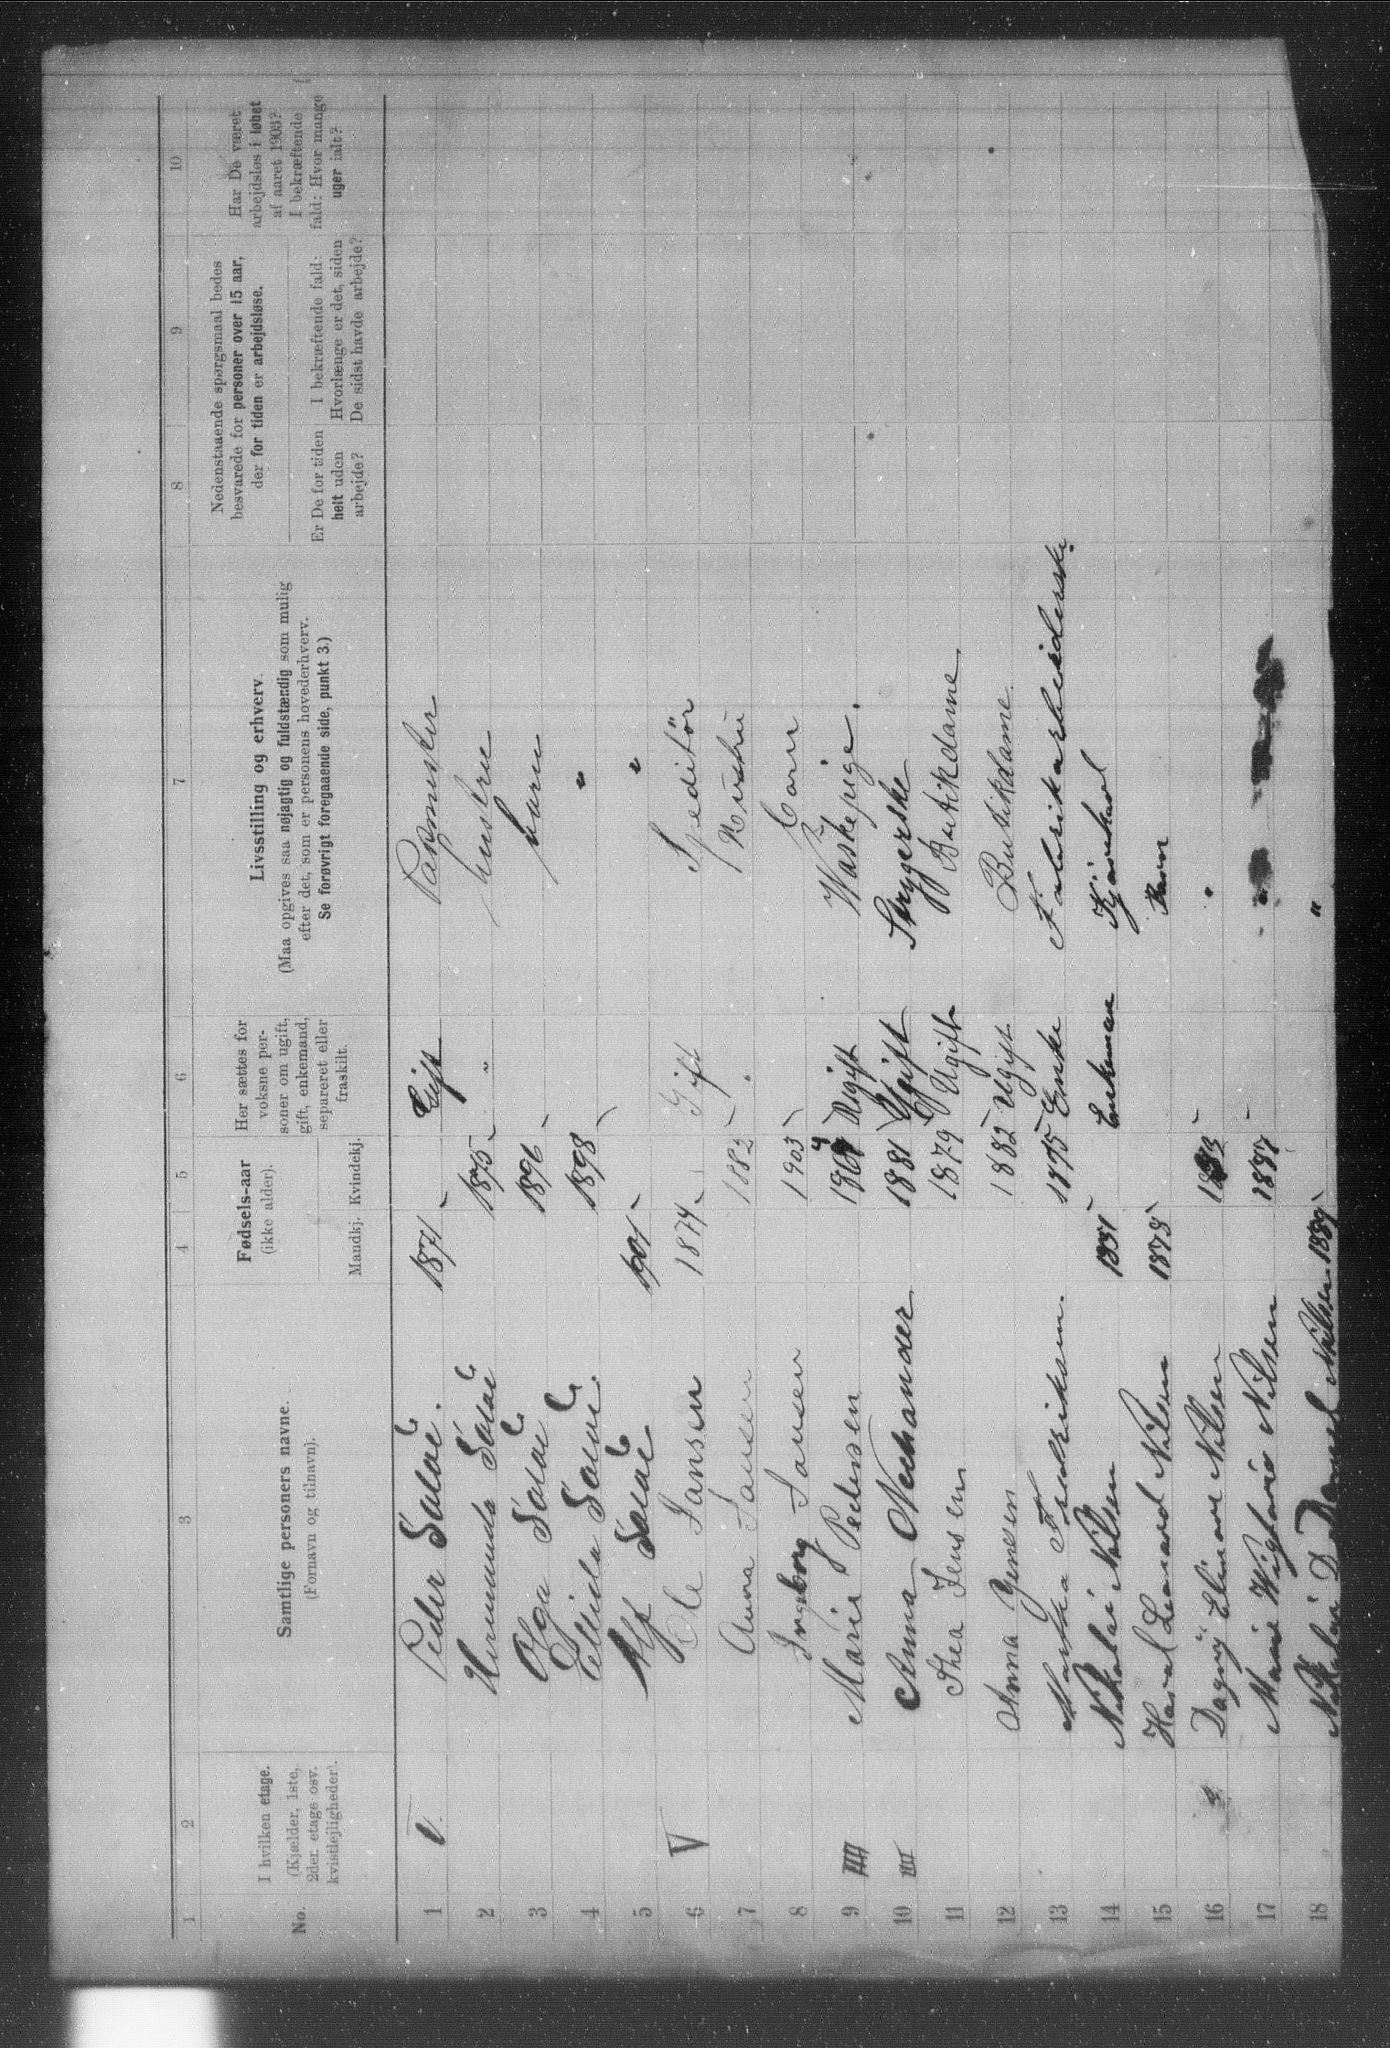 1 2 3 4 5 6 7 8 9 10
No.
I hvilken etage.
(Kjælder, 1ste,
2der. etage osv.
kvistlejligheder).
Samtlige personers navne.
(Fornavn og tilnavn).
Fødsels-aar
(ikke alder).
Mandkj. Kvindekj.
Her sættes for
voksne per-
soner om ugift,
gift, enkemand,
separeret eller
fraskilt.
Livsstilling og erhverv.
(Maa opgives saa nøjagtig og fuldstændig som mulig
efter det, som er personens hovederhverv.
Se forøvrigt foregaaende side, punkt 3.)
Nedenstaaende spørgsmaal bedes
besvarede for personer over 15 aar,
der for tiden er arbejdsløse.
Er De for tiden
helt uden
arbejde?
I bekræftende fald:
Hvorlænge er det, siden
De sidst havde arbejde?
Har De været
arbejdsløs i løbet
af aaret 1903?
I bekræftende
fald: Hvor mange
uger ialt?
1 V. Peder 1871 Gift Pakmester
2 1875 " hustru
3 Olga 1896 barn
4 1898 "
5 Alf 1901 "
6 V Ole Jansen 1874 Gift Speditør
7 Anna Jansen 1882 " Hustru
8 Ingeborg Jansen 1903 Barn
9 IIII Marie Pedersen Ugift Vaskepige.
10 III Anna 1881 Ugift Strygerske
11 Thea Jensen 1879 Ugift Butikdame.
12 Anna Jensen 1882 Ugift Butikdame.
13 1875 Enke Fabrikarbeiderske
14 Nikolai Nilsen 1851 Enkeman
15 Leonard Nilsen 1878 Barn
16 Dagny Elinore Nilsen "
17 Marie Nilsen
18 Nikolai D Daniel Nilsen 1889 "